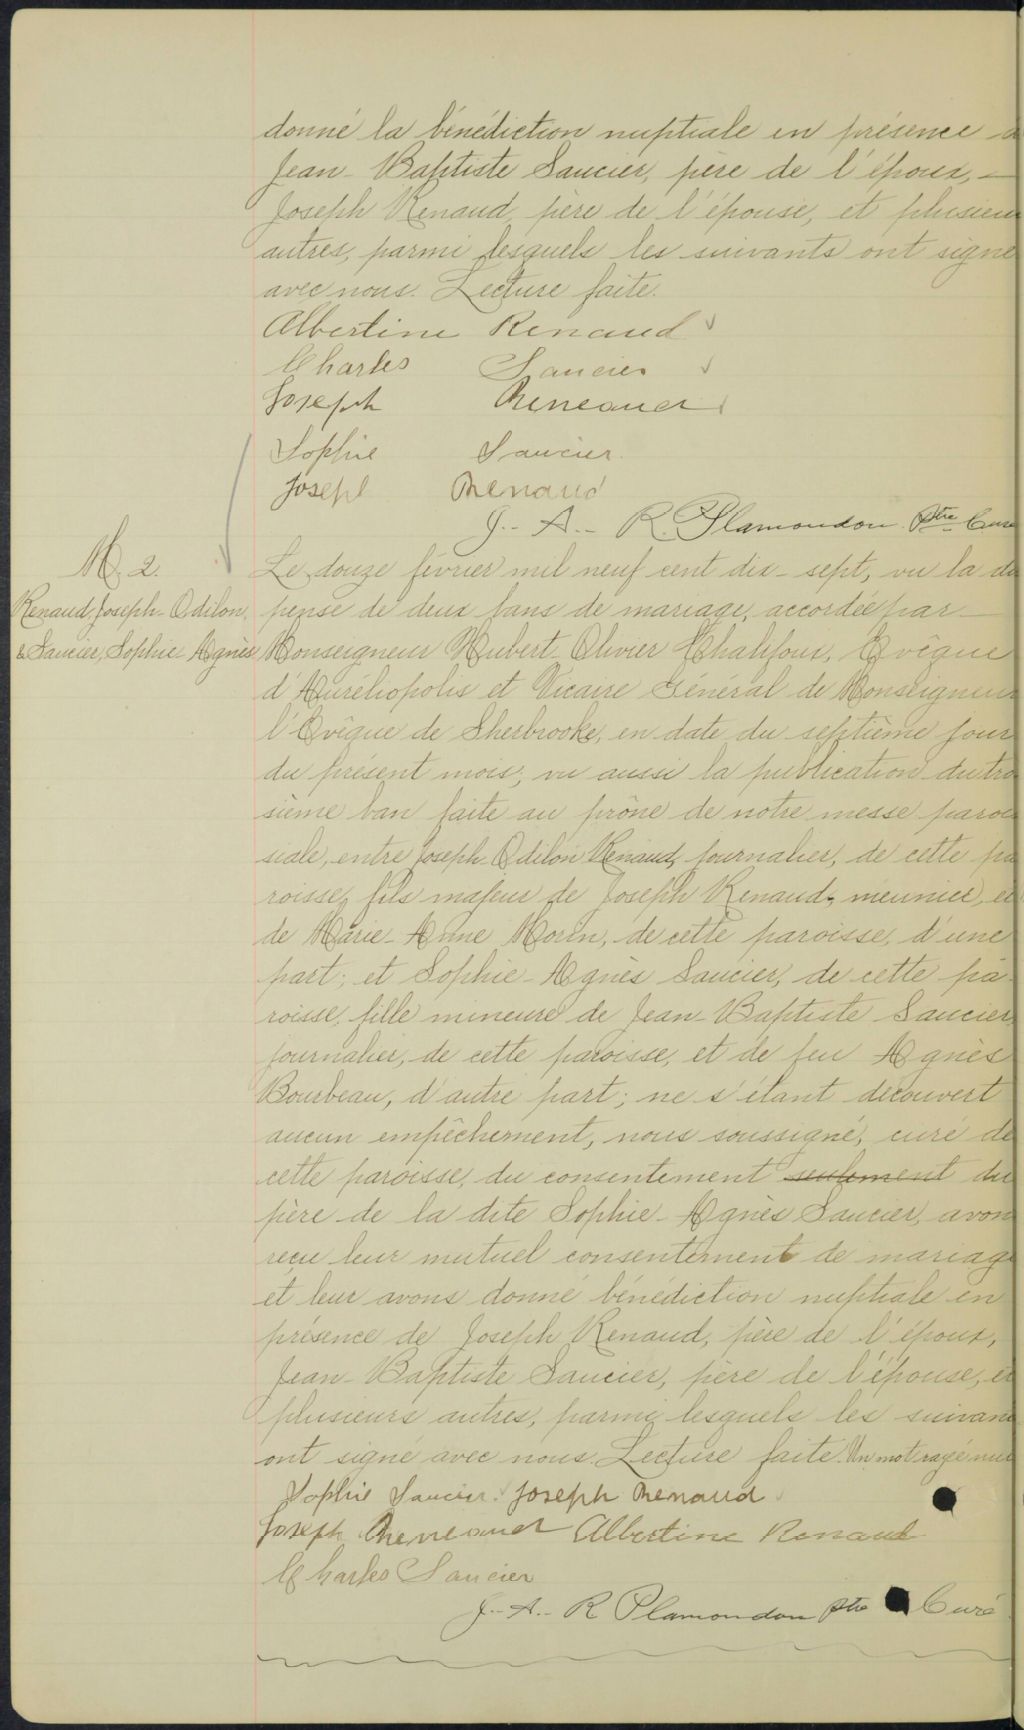 donné la bénédiction nuptiale en présence d
Jean-Baptiste Saucier, père de l'époux, —
Joseph Renaud, père de l'épouse, et plusieurs
autres, parmi lesquels les suivants ont signé
avec nous. Lecture faite.
Albertine Renaud
Charles Saucier
Joseph Reneaud
Sophie Saucier.
Joseph Renaud
J.-A.- R. Plamondon. Ptre Curé
M. 2.
Renaud, Joseph-Odilon,
& Saucier, Sophie Agnès
Le douze février mil neuf cent dix-sept, vu la dis
pense de deux bans de mariage, accordée par —
Monseigneur Hubert Olivier Chalifoux, Évêque
d'Auréliopolis et Vicaire Général de Monseigneur
l'Évêque de Sherbrooke, en date du septième jour
du présent mois, vu aussi la publication du troi
sième ban faite au prône de notre messe parois
siale, entre Joseph-Odilon Renaud, journalier, de cette pa
roisse, fils majeur de Joseph Renaud, meunier, et
de Marie-Anne Morin, de cette paroisse, d'une
part; et Sophie-Agnès Saucier, de cette pa-
roisse, fille mineure de Jean-Baptiste Saucier,
journalier, de cette paroisse, et de feu Agnès
Bourbeau, d'autre part; ne s'étant découvert
aucun empêchement, nous soussigné, curé de
cette paroisse, du consentement seulement du
père de la dite Sophie-Agnès Saucier, avons
reçu leur mutuel consentement de mariage
et leur avons donné bénédiction nuptiale en
présence de Joseph Renaud, père de l'époux,
Jean-Baptiste Saucier, père de l'épouse, et
plusieurs autres, parmi lesquels les suivants
ont signé avec nous. Lecture faite. Un mot rayé nul
Sophie Saucier. Joseph Renaud
Joseph Reneaud Albertine Renaud
Charles Saucier
J.-A.- R Plamondon Ptre Curé